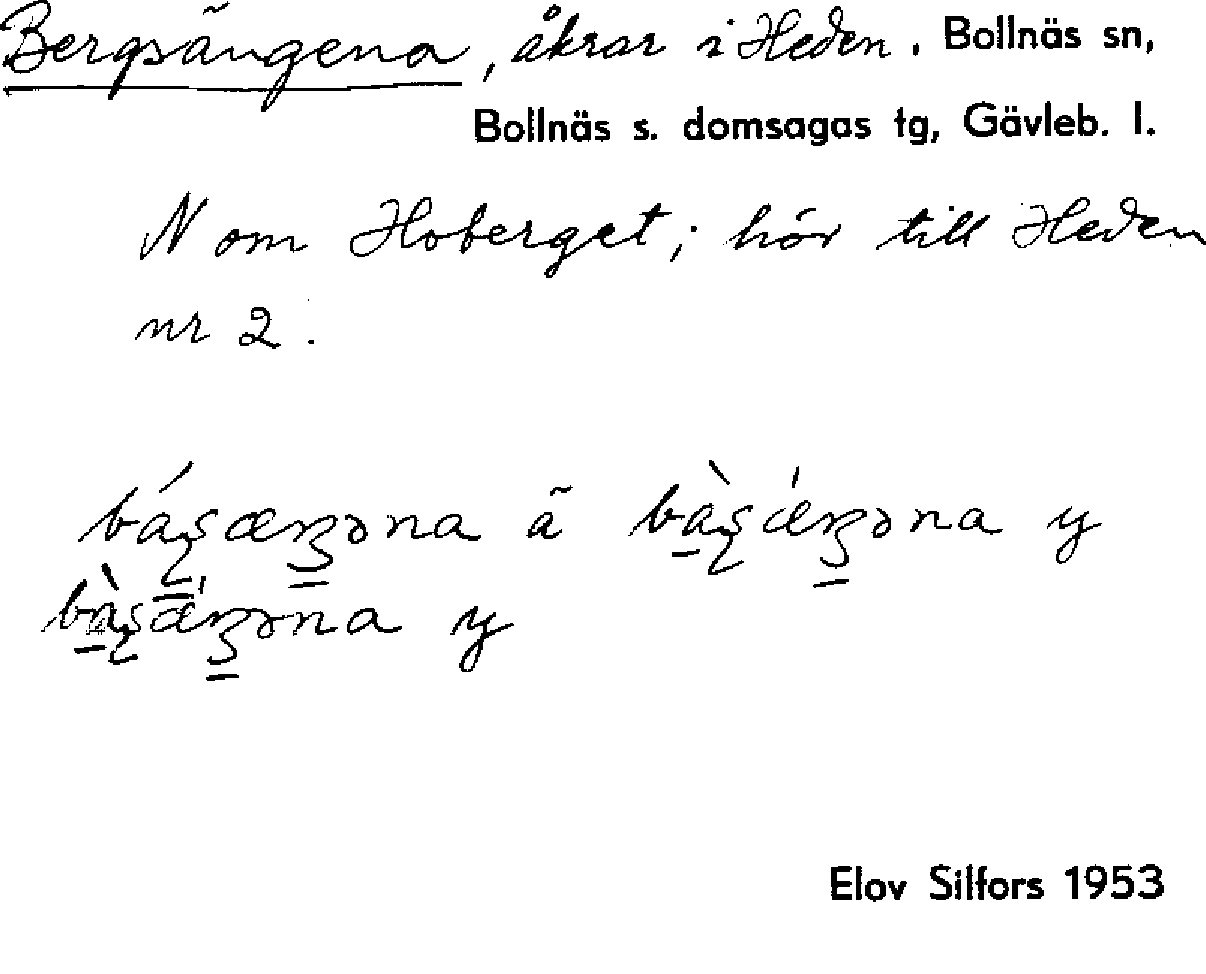 Bergsängena, åkrar i Heden. Bollnäs sn,
Bollnäs s. domsagas tg, Gävleb. l.
N om Hoberget; hör till Heden
nr 2.
ã
y
y
Elov Silfors 1953